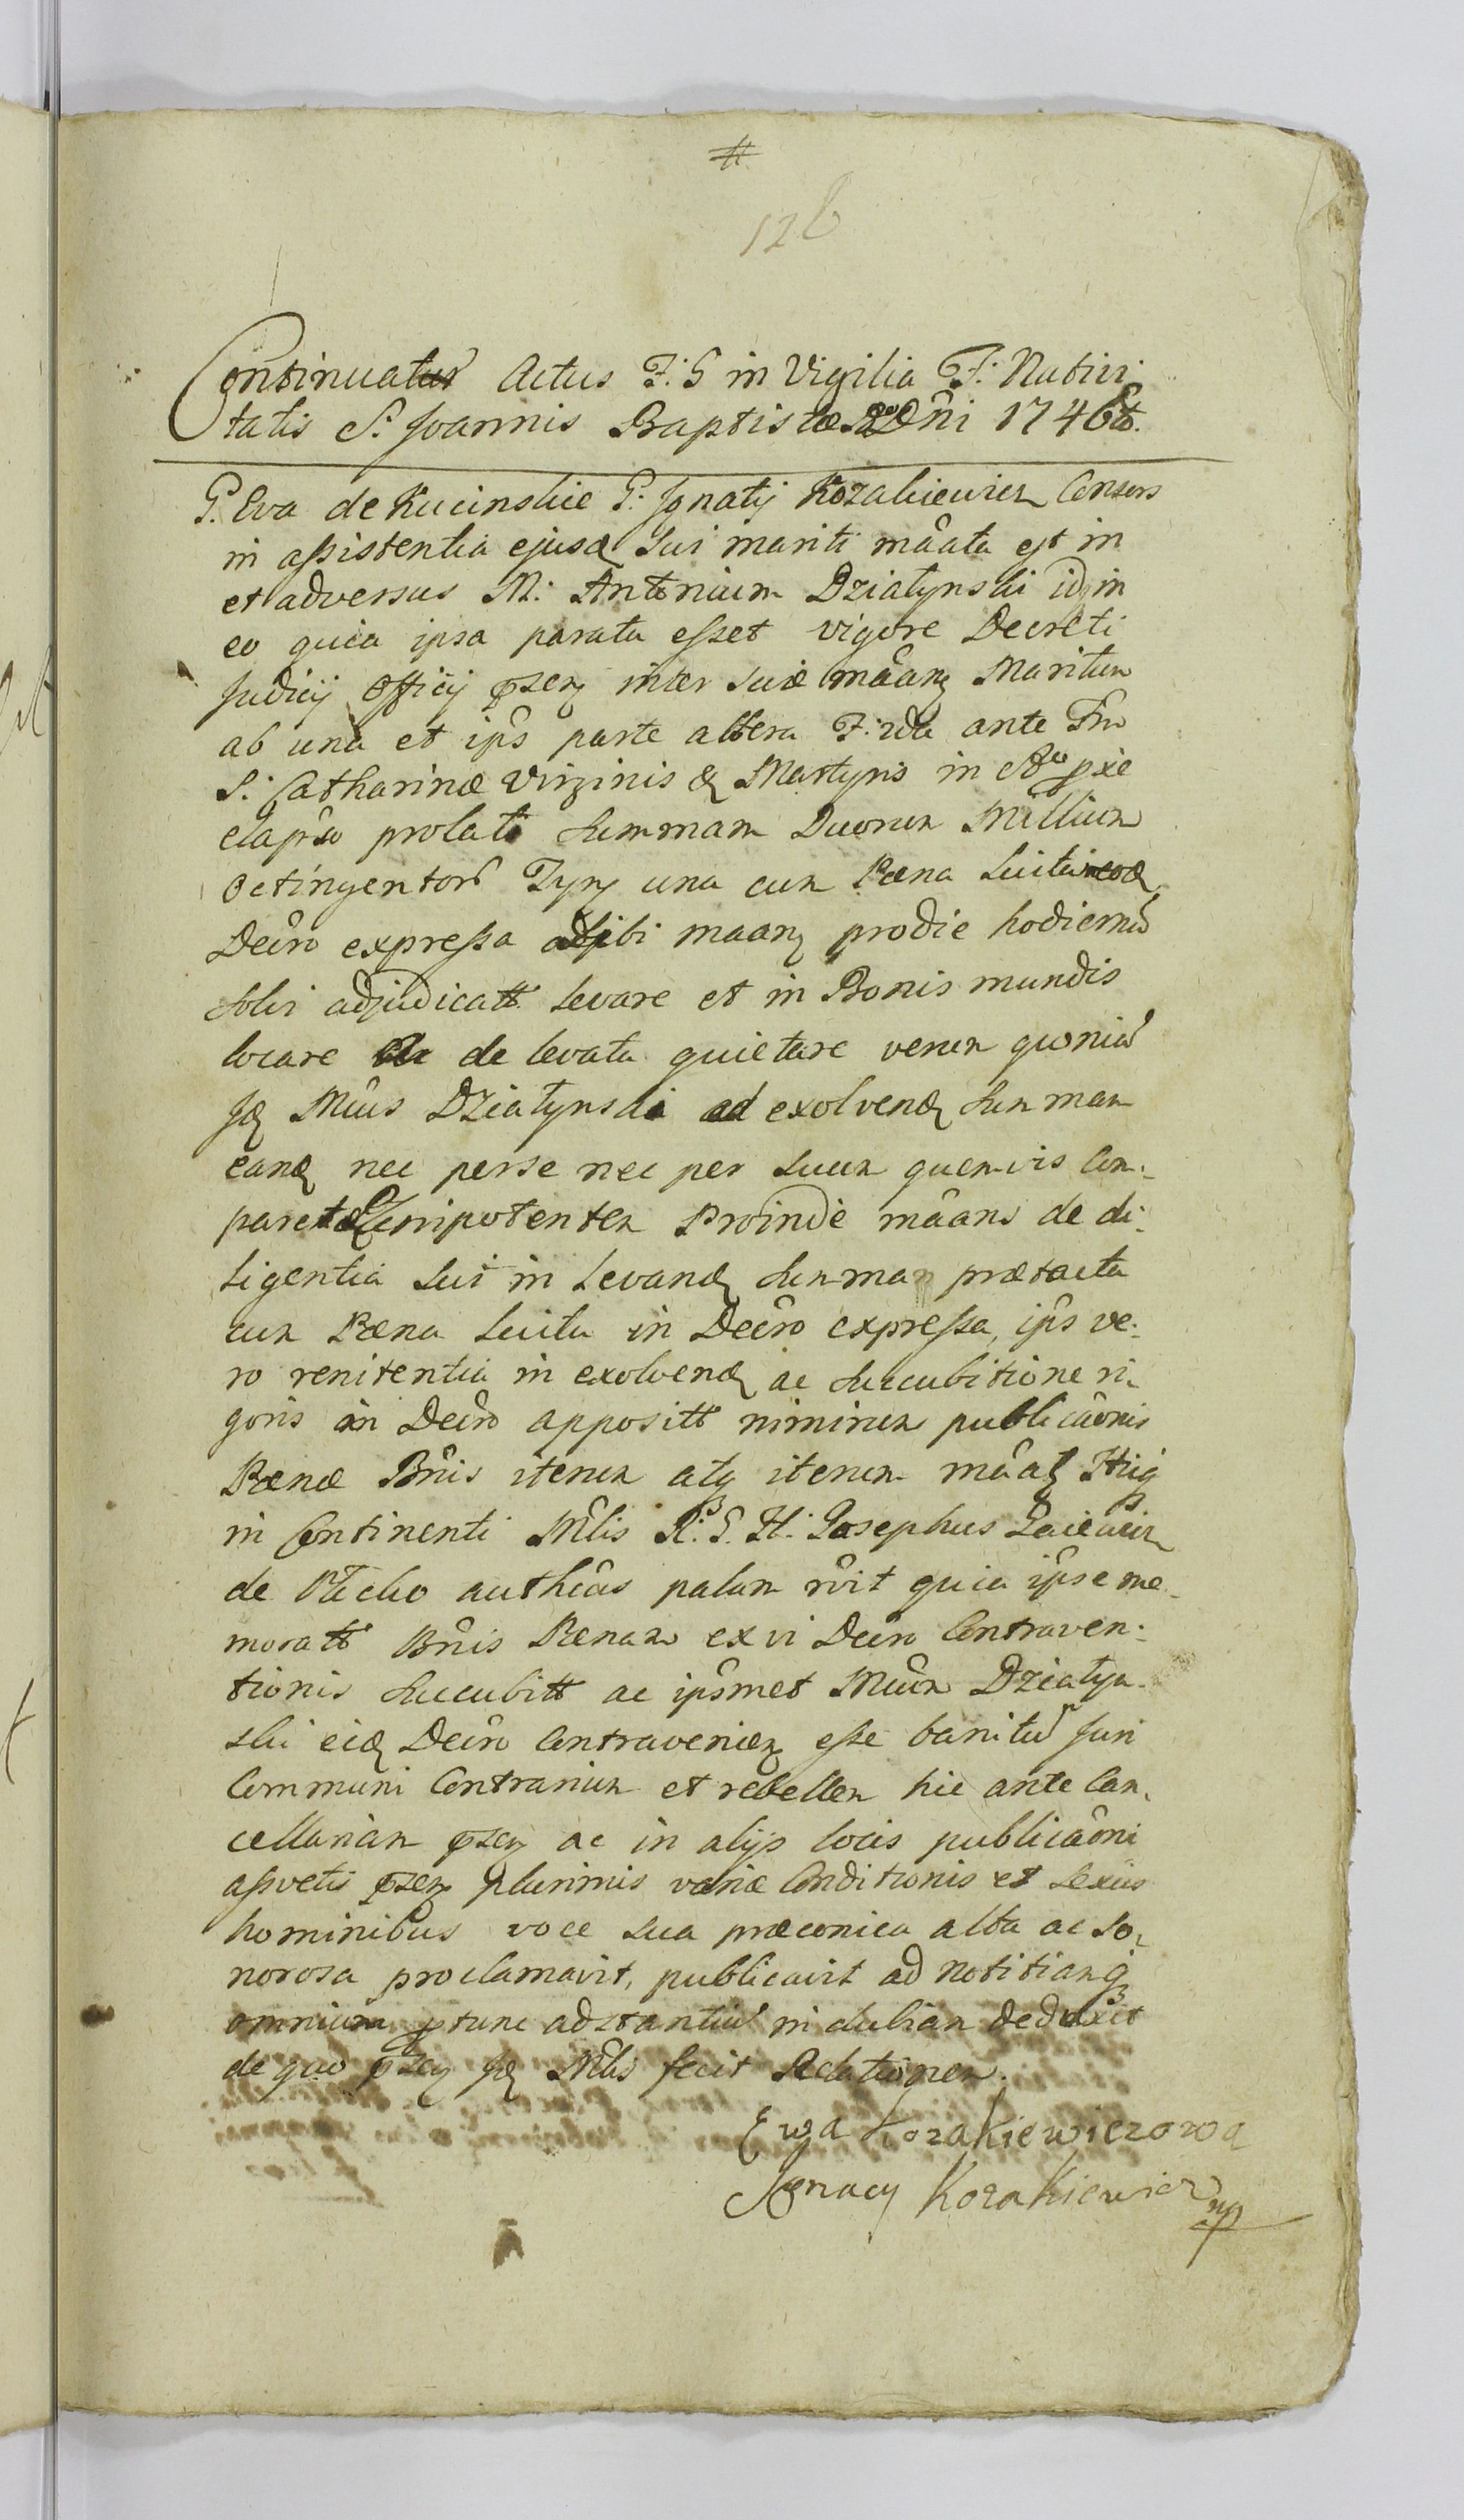 #
126
Continuatur Actus F: 5 in Vigilia F: Nativi
tatis S: Joannis Baptistæ Aō Dn̂i 1746to.
G. Eva de Kucinskie G: Ignatij Kozakiewicz Consors
in aſsistentia ejusd sui mariti mâata est in
et adversus M: Antonium Dziatynski id in
eo quia ipsa parata eſset vigore Decreti
Judicij Officij pszen inter suæ mâanz Maritum
ab una et ip̂s parte altera F: 2da ante Fm̂
S: Catharinæ Virginis & Martyris in Aō pxe
elapso prolati summam Duorum Millium
Octingentorū Tynf una cum Pæna Luita in eod
Decrô expreſsa a sibi maanz prodie hodiernū
solvi adjudicatt levare et in Bonis mundis
locare ac de levata quietare verum quoniā
Jd Mûus Dziatynski ad exolvend summam
eand nec perse nec per suum quemvis Com:
paret Plenipotentem Proinde mâans de di:
ligentia sui in Levand summam prætacta
cum Pæna luita in Decrô expreſsa, ip̂s ve:
ro renitentia in exolvend ac succubitione ri:
goris in Decrô appositt nimirum publicaônis
Pænæ Bn̂is iterum atq iterum mâatz Hicq
in Continenti Mlîs R: G. H: Josephus Gaiewicz
de Płocko authcûs palam rvît quia ip̂se me:
moratt Bn̂is Pænam ex vi Decrô Contraven:
tionis succubitt ac ip̂smet Mûum Dziatyn:
ski eid Decrô Contravenien eſse banitū Juri
Communi Contrarium et rebellem hic ante Can:
cellariam pszen ac in alijs locis publicaôni
aſsvetis pszen plurimis variæ Conditionis et sexûs
hominibus voce sua præconica alta ac so:
norosa proclamavit, publicavit ad notitiamq
omnium ptunc adstantiū indubiam deduxit
de quo pszen Jd Mlîs fecit Relationem.
Ewa Kozakiewiczowa
Ignacy Kozakiewicz mp